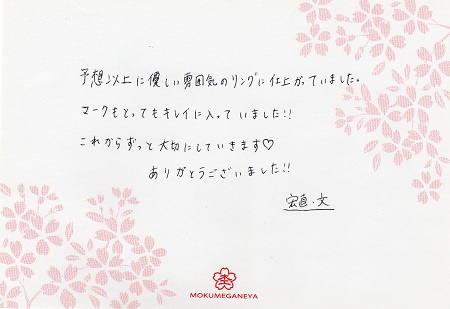 予想以上に優しい雰囲気のリングに仕上がっていました。
マークもとってもキレイに入っていました!!
これからずっと大切にしていきます♡
ありがとうございました!!
宏直・文
MOKUMEGANEYA